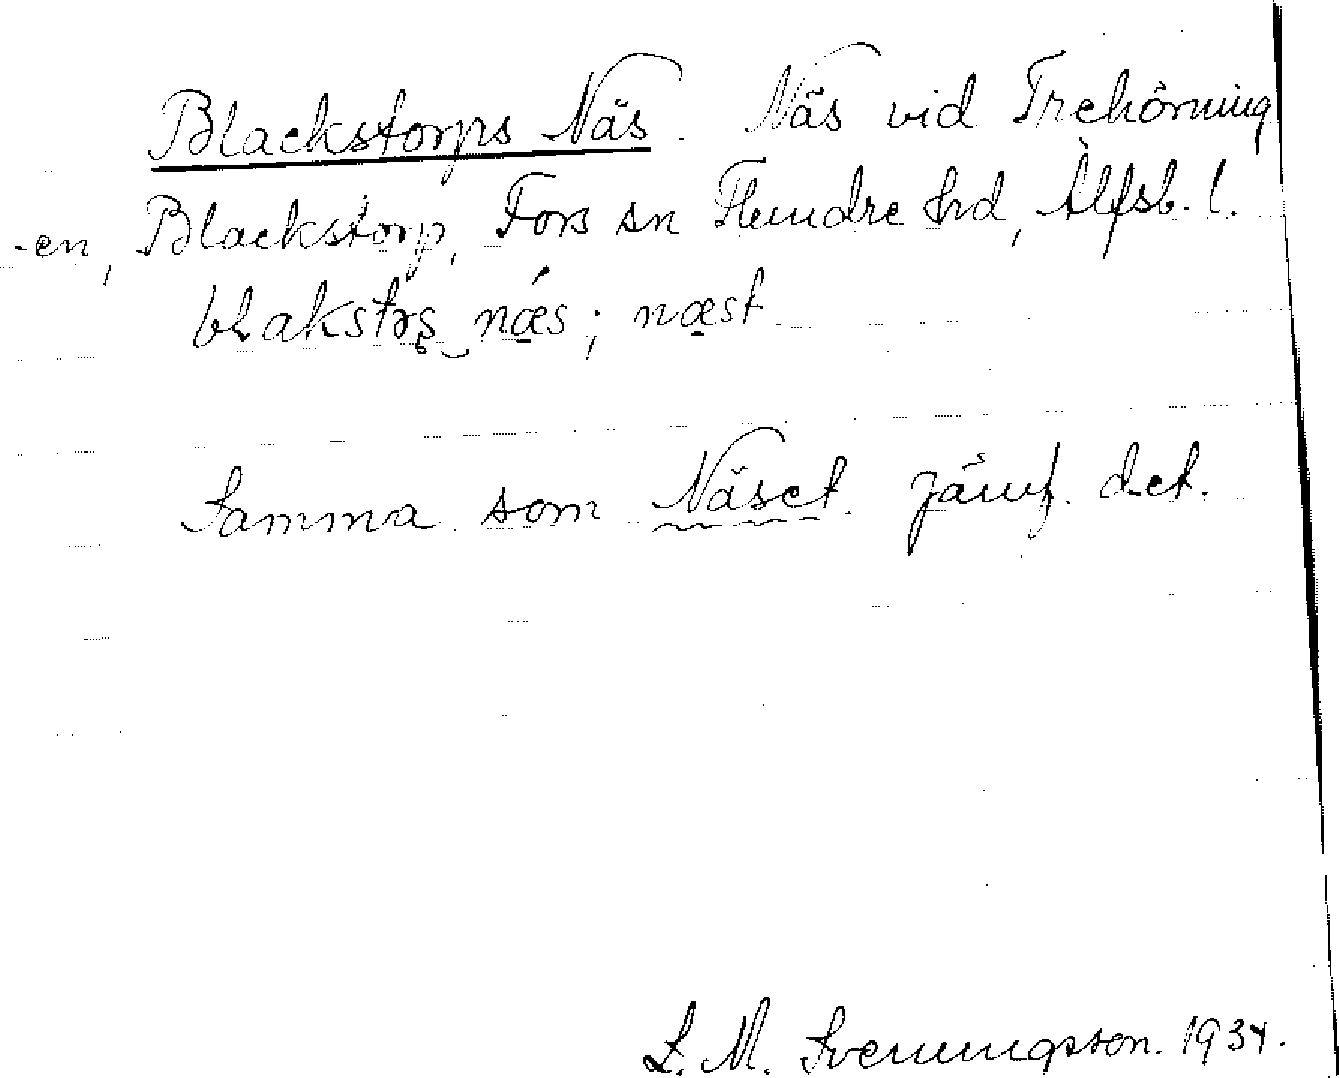 Blackstorps Näs. Näs vid Trehörning
-en, Blackstorp, Fors sn Flundre hd, Älfsb. l.
bLakstrs næ´s; næst
Samma som Näset. jämf. det.
L. M. Svenungsson. 1934.